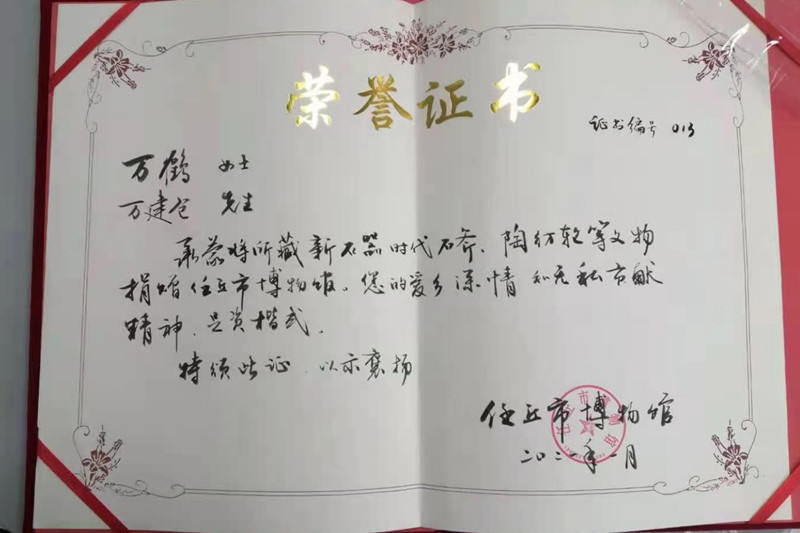 荣誉证书
证书编号 013
万鹤 女士
万建仓 先生
承蒙将所藏新石器时代石斧、陶纺轮等文物
捐赠任丘市博物馆。您的爱乡深情和无私贡献
精神,足资楷式。
特颁此证 以示褒扬
任丘市博物馆
二〇二一年一月